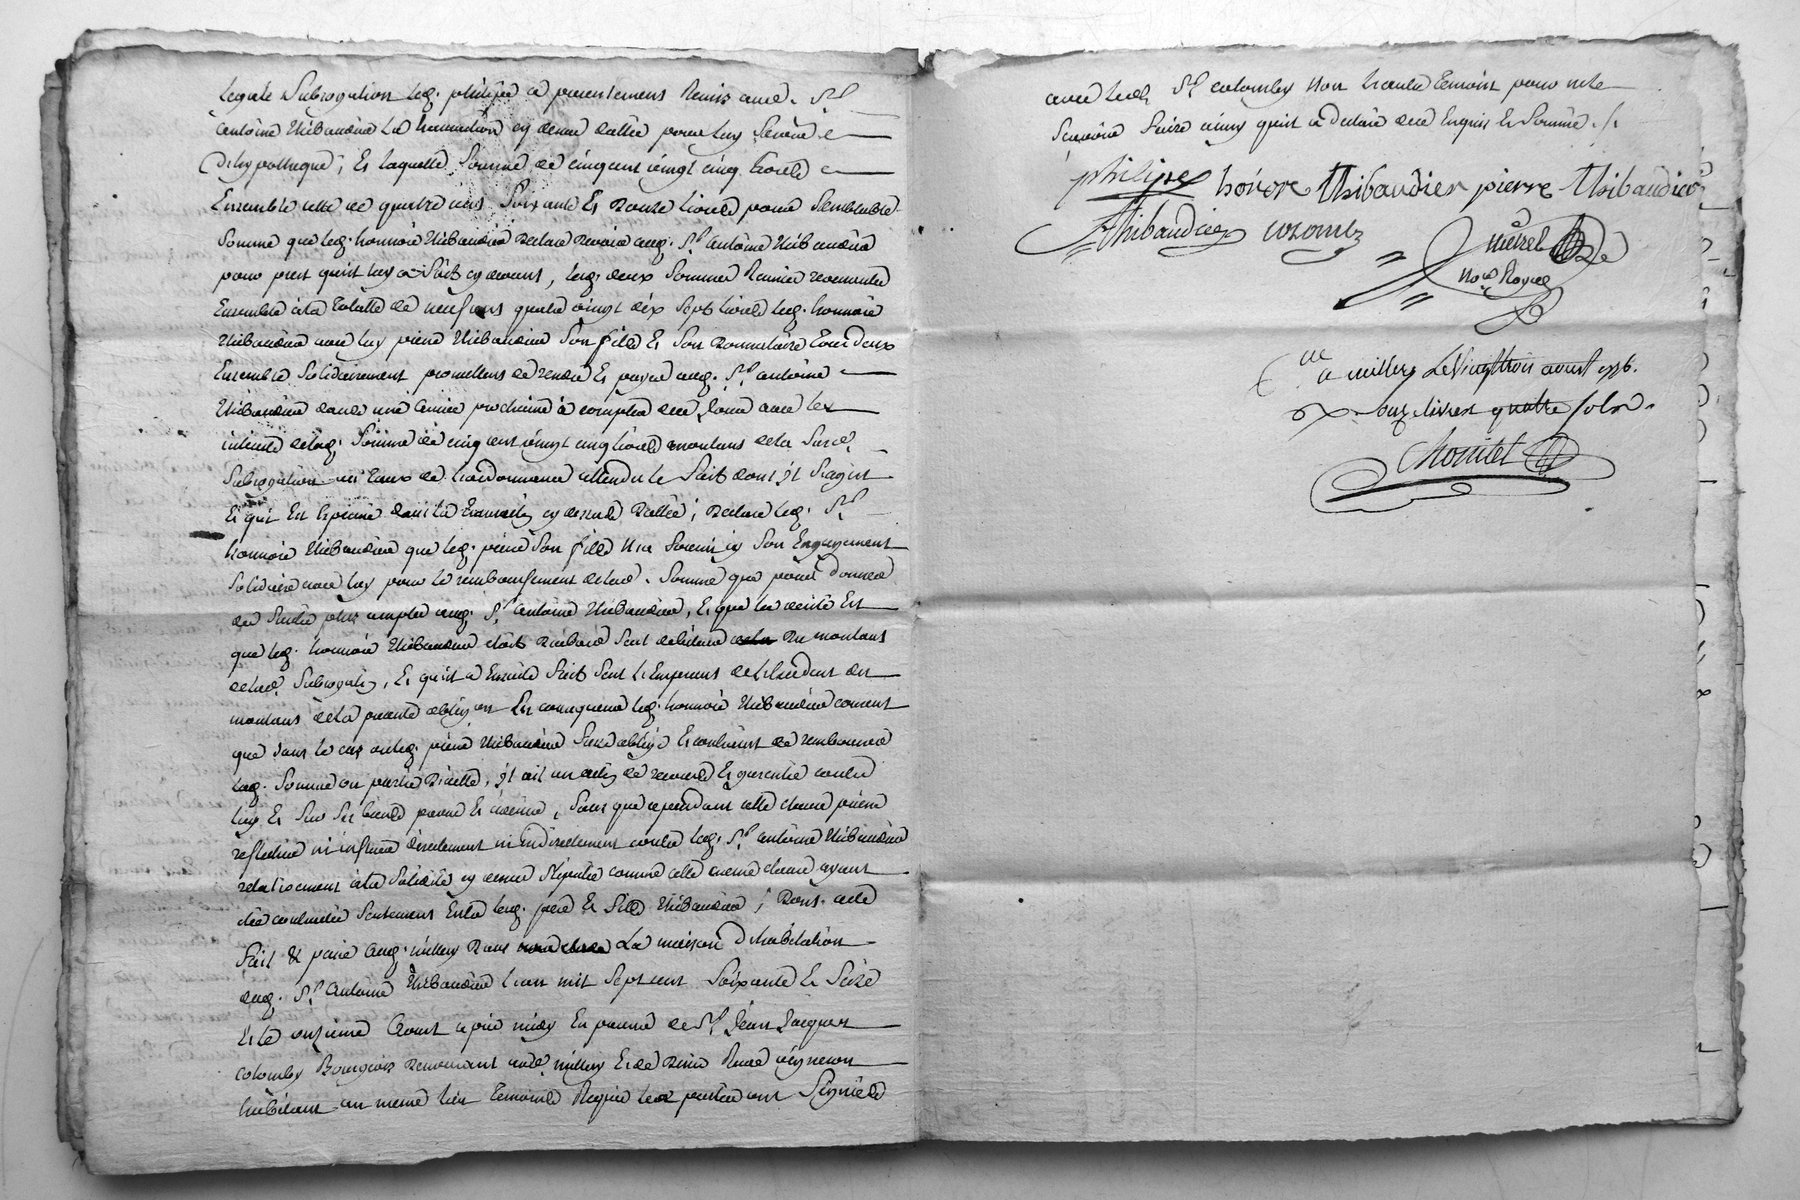 legale Subrogation led. philipe a presentement Remis aud. Sr.
antoine thibaudier la transaction cy dessus dattée pour luy servir
D'hypotheque, Et laquelle somme de cinq cent vingt cinq livres
Ensemble celle de quatre cens soixante Et douze livres pour semblable
somme que led. honnoré thibaudier declare devoir aud. Sr. antoine thibaudier
pour prest qu'il luy a fait cy devant, lesd. deux sommes
Ensemble a la totalle de neuf cens quatre vingt dix sept livres led. honnoré
thibaudier avec luy pierre thibaudier son fils Et son Donnataire tous deux
Ensemble solidairement promettent de rendre Et payer aud. Sr. antoine
thibaudier dans une année prochaine à compter de ce jour avec les
interets de lad. somme de cinq cent vingt cinq livres montant de la susd.
Subrogation au taux de l'ordonnance attendu le fait dont il s'agit
Et qui Est Exprimé dans la transaction cy dessus dattée; Declare led. Sr.
honnoré thibaudier que led. pierre son fils n'a fourni icy son Engagement
solidaire avec luy pour le remboursement de lad. somme que pour donner
de sureté plus ample aud. Sr. antoine thibaudier, Et que la verité Est
que led. honnoré thibaudier etoit D'abord seul debiteur du montant
de lad. Subrogation, Et qu'il a Ensuite fait seul l'Emprunt de l'Excedant du
montant de la presente obligation En consequence led. honnoré thibaudier consent
que dans le cas ou led. pierre thibaudier seroit obligé Et contraint de rembourser
lad. somme ou partie D'icelle, il ait un action de recours Et garentie contre
luy Et sur ses biens presens Et avenir, sans que cependant cette clause puisse
refluer ni influer directement ni indirectement contre led. Sr. antoine thibaudier
relativement à la solidité cy dessus stipulée comme cette même clause ayant
été convenüe seulement Entre lesd. pere Et fils thibaudier; Dont acte
fait & passé aud. millery Dans La maison D'habitation
dud. Sr. Antoine thibaudier l'an mil sept cent soixante Et seize
Et le onzieme Aoust après midy En presence de Sr. Jean Jacques
colomby Bourgeois demeurant aud. millery Et de René vigneron
habitant au meme lieu temoins Requis les parties ont signé
avec led. Sr. colomby non l'autre temoin pour ne le
sçavoir faire ainsy qu'il a declaré de ce Enquis Et sommé ./.
philipe honore thibaudier pierre thibaudier
thibaudier colomby
Nore. Royal
Clé. a millery Le vingt trois aoust 1776.
R. onze livres quatre sols.